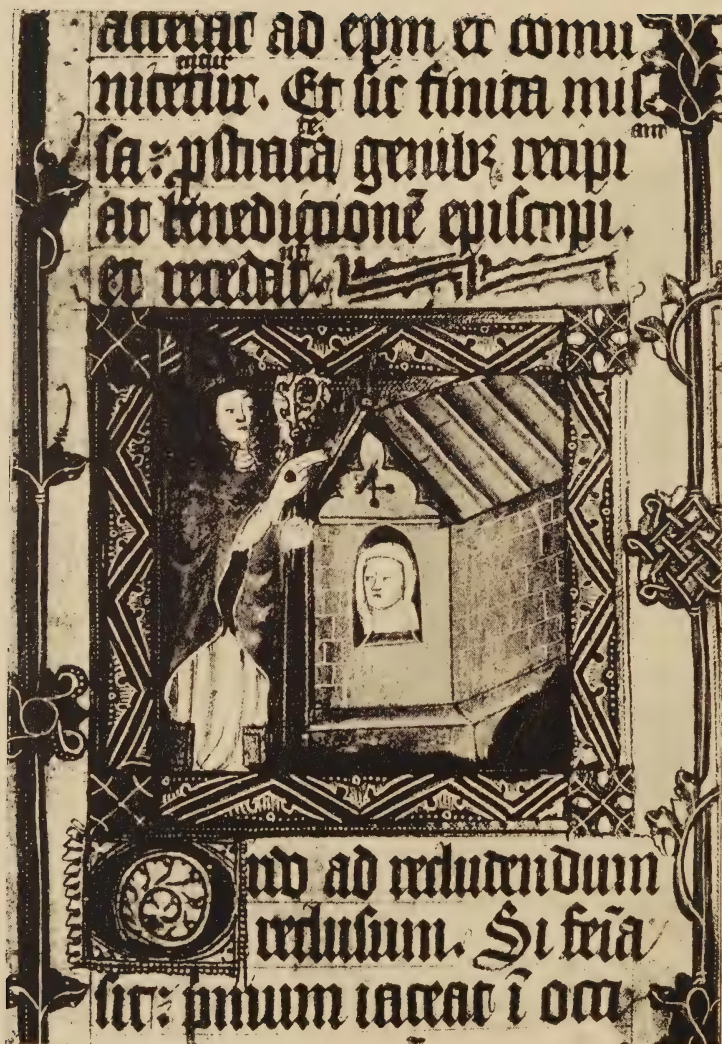 accedat ad ep̄m et comu
nicetur. Et sic finita mis
te.
ant
sa: ꝓstrata genibꝫ recipi
at benedictionē episcopi.
et recedat.
Ordo ad recludendum
reclusum. Si fem̄a
sit: pmum iaceat ī occi